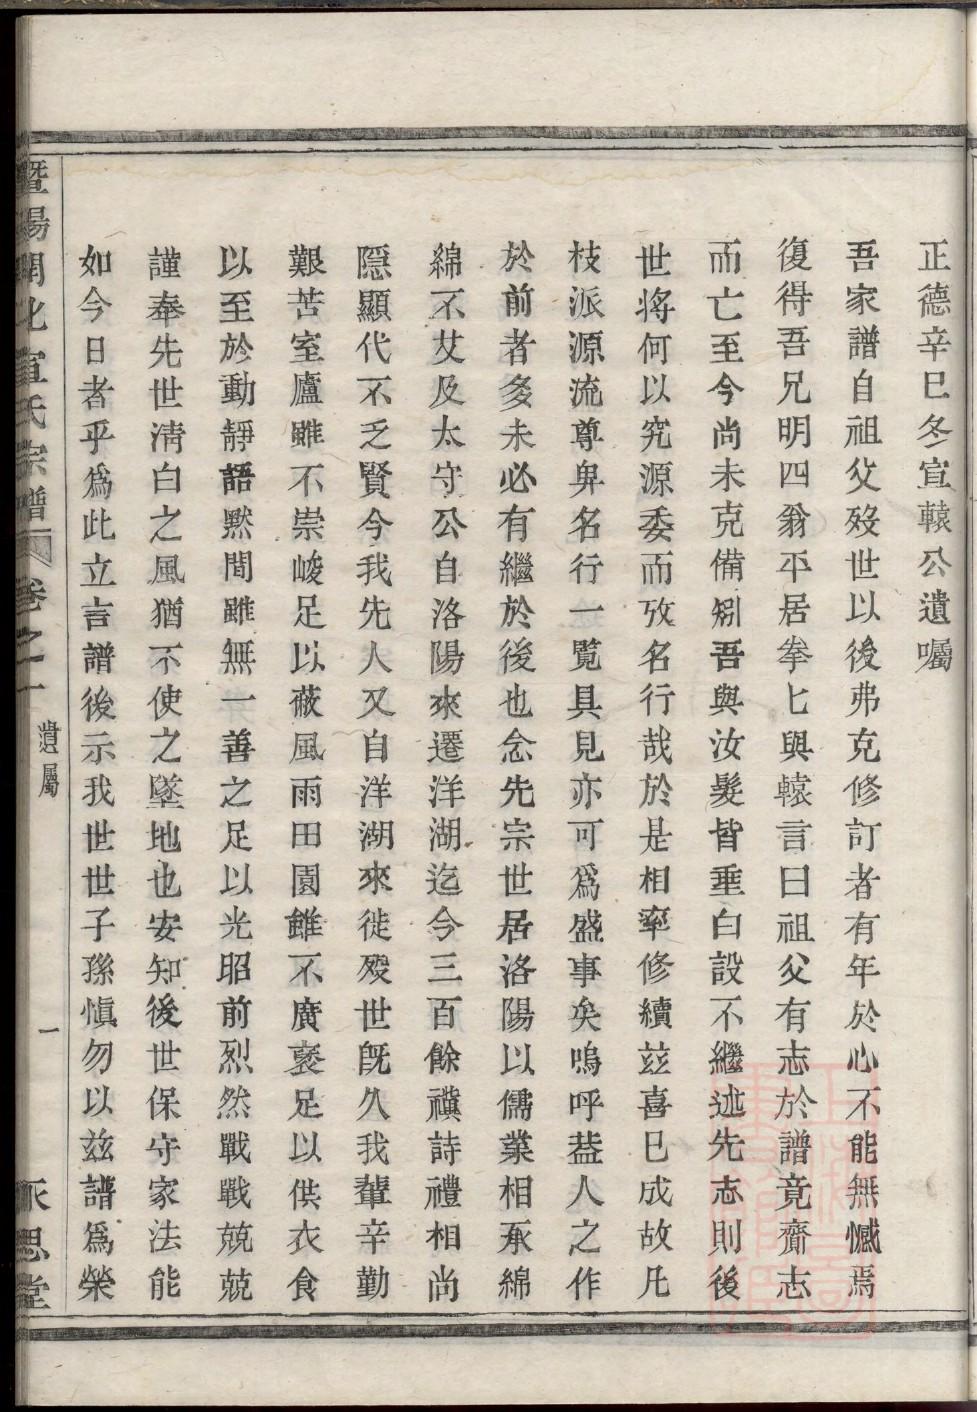 正德辛巳冬宣轅公遺囑
吾家譜自祖父歿世以後弗克修訂者有年於心不能無憾焉
復得吾兄明四翁平居拳匕與轅言曰祖父有志於譜竟齎志
而亡至今尚未克備矧吾與汝髮皆垂白設不繼述先志則後
世將何以究源委而攷名行哉於是相率修續玆喜已成故凡
枝派源流尊卑名行一覧具見亦可爲盛事矣嗚呼葢人之作
於前者多未必有繼於後也念先宗世居洛陽以儒業相承綿
綿不艾及太守公自洛陽來遷洋湖迄今三百餘禩詩禮相尚
隱顯代不乏賢今我先人又自洋湖來徙歿世旣久我輩辛勤
艱苦室廬雖不崇峻足以蔽風雨田園雖不廣褒足以供衣食
以至於動靜語黙間雖無一善之足以光昭前烈然戰戰兢兢
謹奉先世淸白之風猶不使之墜地也安知後世保守家法能
如今日者乎爲此立言譜後示我世世子孫愼勿以玆譜爲榮
暨陽開化宣氏宗譜 卷之一 遺屬 一 承思堂